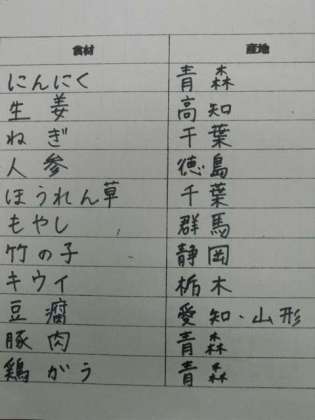 食材 産地
にんにく 青森
生姜 高知
ねぎ 千葉
人参 徳島
ほうれん草 千葉
もやし 群馬
竹の子 静岡
キウイ 栃木
豆腐 愛知・山形
豚肉 青森
鶏がら 青森